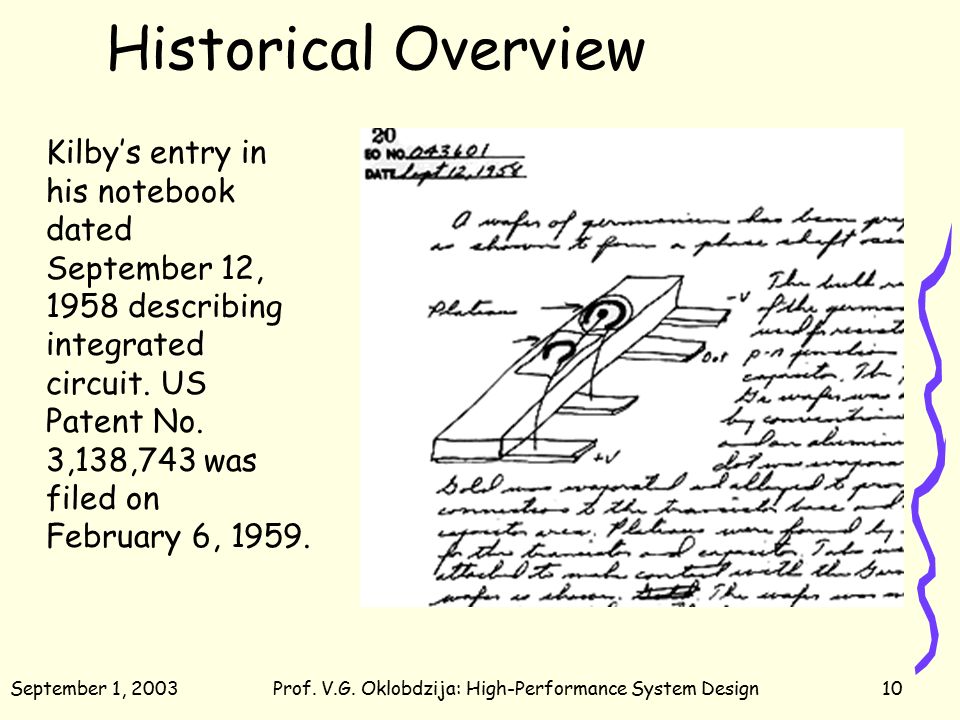 Historical Overview
Kilby’s entry in
his notebook
dated
September 12,
1958 describing
integrated
circuit. US
Patent No.
3,138,743 was
filed on
February 6, 1959.
20
EO NO. 043601
DATE Sept 12, 1958
A wafer of germanium has been prep
as shown to form a phase shift osci
Plateaus
-V
Out
+V
The bulk re
of the germa
used for resisto
p-n junction
capacitor. The
Ge wafer was
by convention
and an aluminu
dot was evapora
Gold was evaporated and alloyed to prov
connections to the transistor base and
capacitor area. Plateaus were formed by
for the transistor and capacitor. Tabs we
attached to make contact with the Ger
wafer as shown. The wafer was m
September 1, 2003
Prof. V.G. Oklobdzija: High-Performance System Design
10